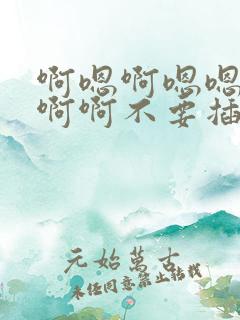 啊嗯啊嗯嗯
啊啊不要插
元始萬古
未经同意禁止转载